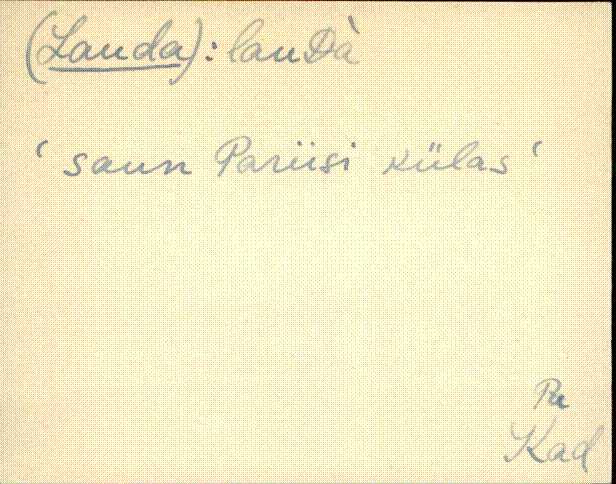 (Lauda): lauDà
‘ saun Pariisi külas ‘
Ru
Kad